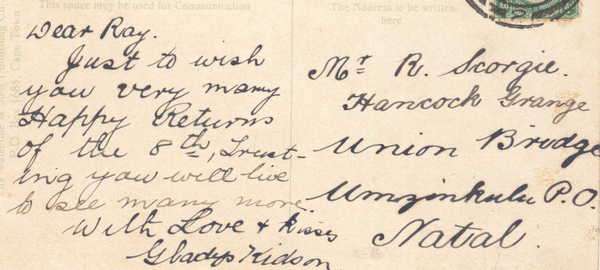 This space may be used for Communication
Dear Ray.
Just to wish
you very many
Happy Returns
of the 8th, Trust-
ing you will live
to see many more.
With Love & Kisses
Gladys Kidson
The Address to be written
here
Mr R. Scorgie.
Hancock Grange
Union Bridge
Umzimkulu P.O.
Natal.